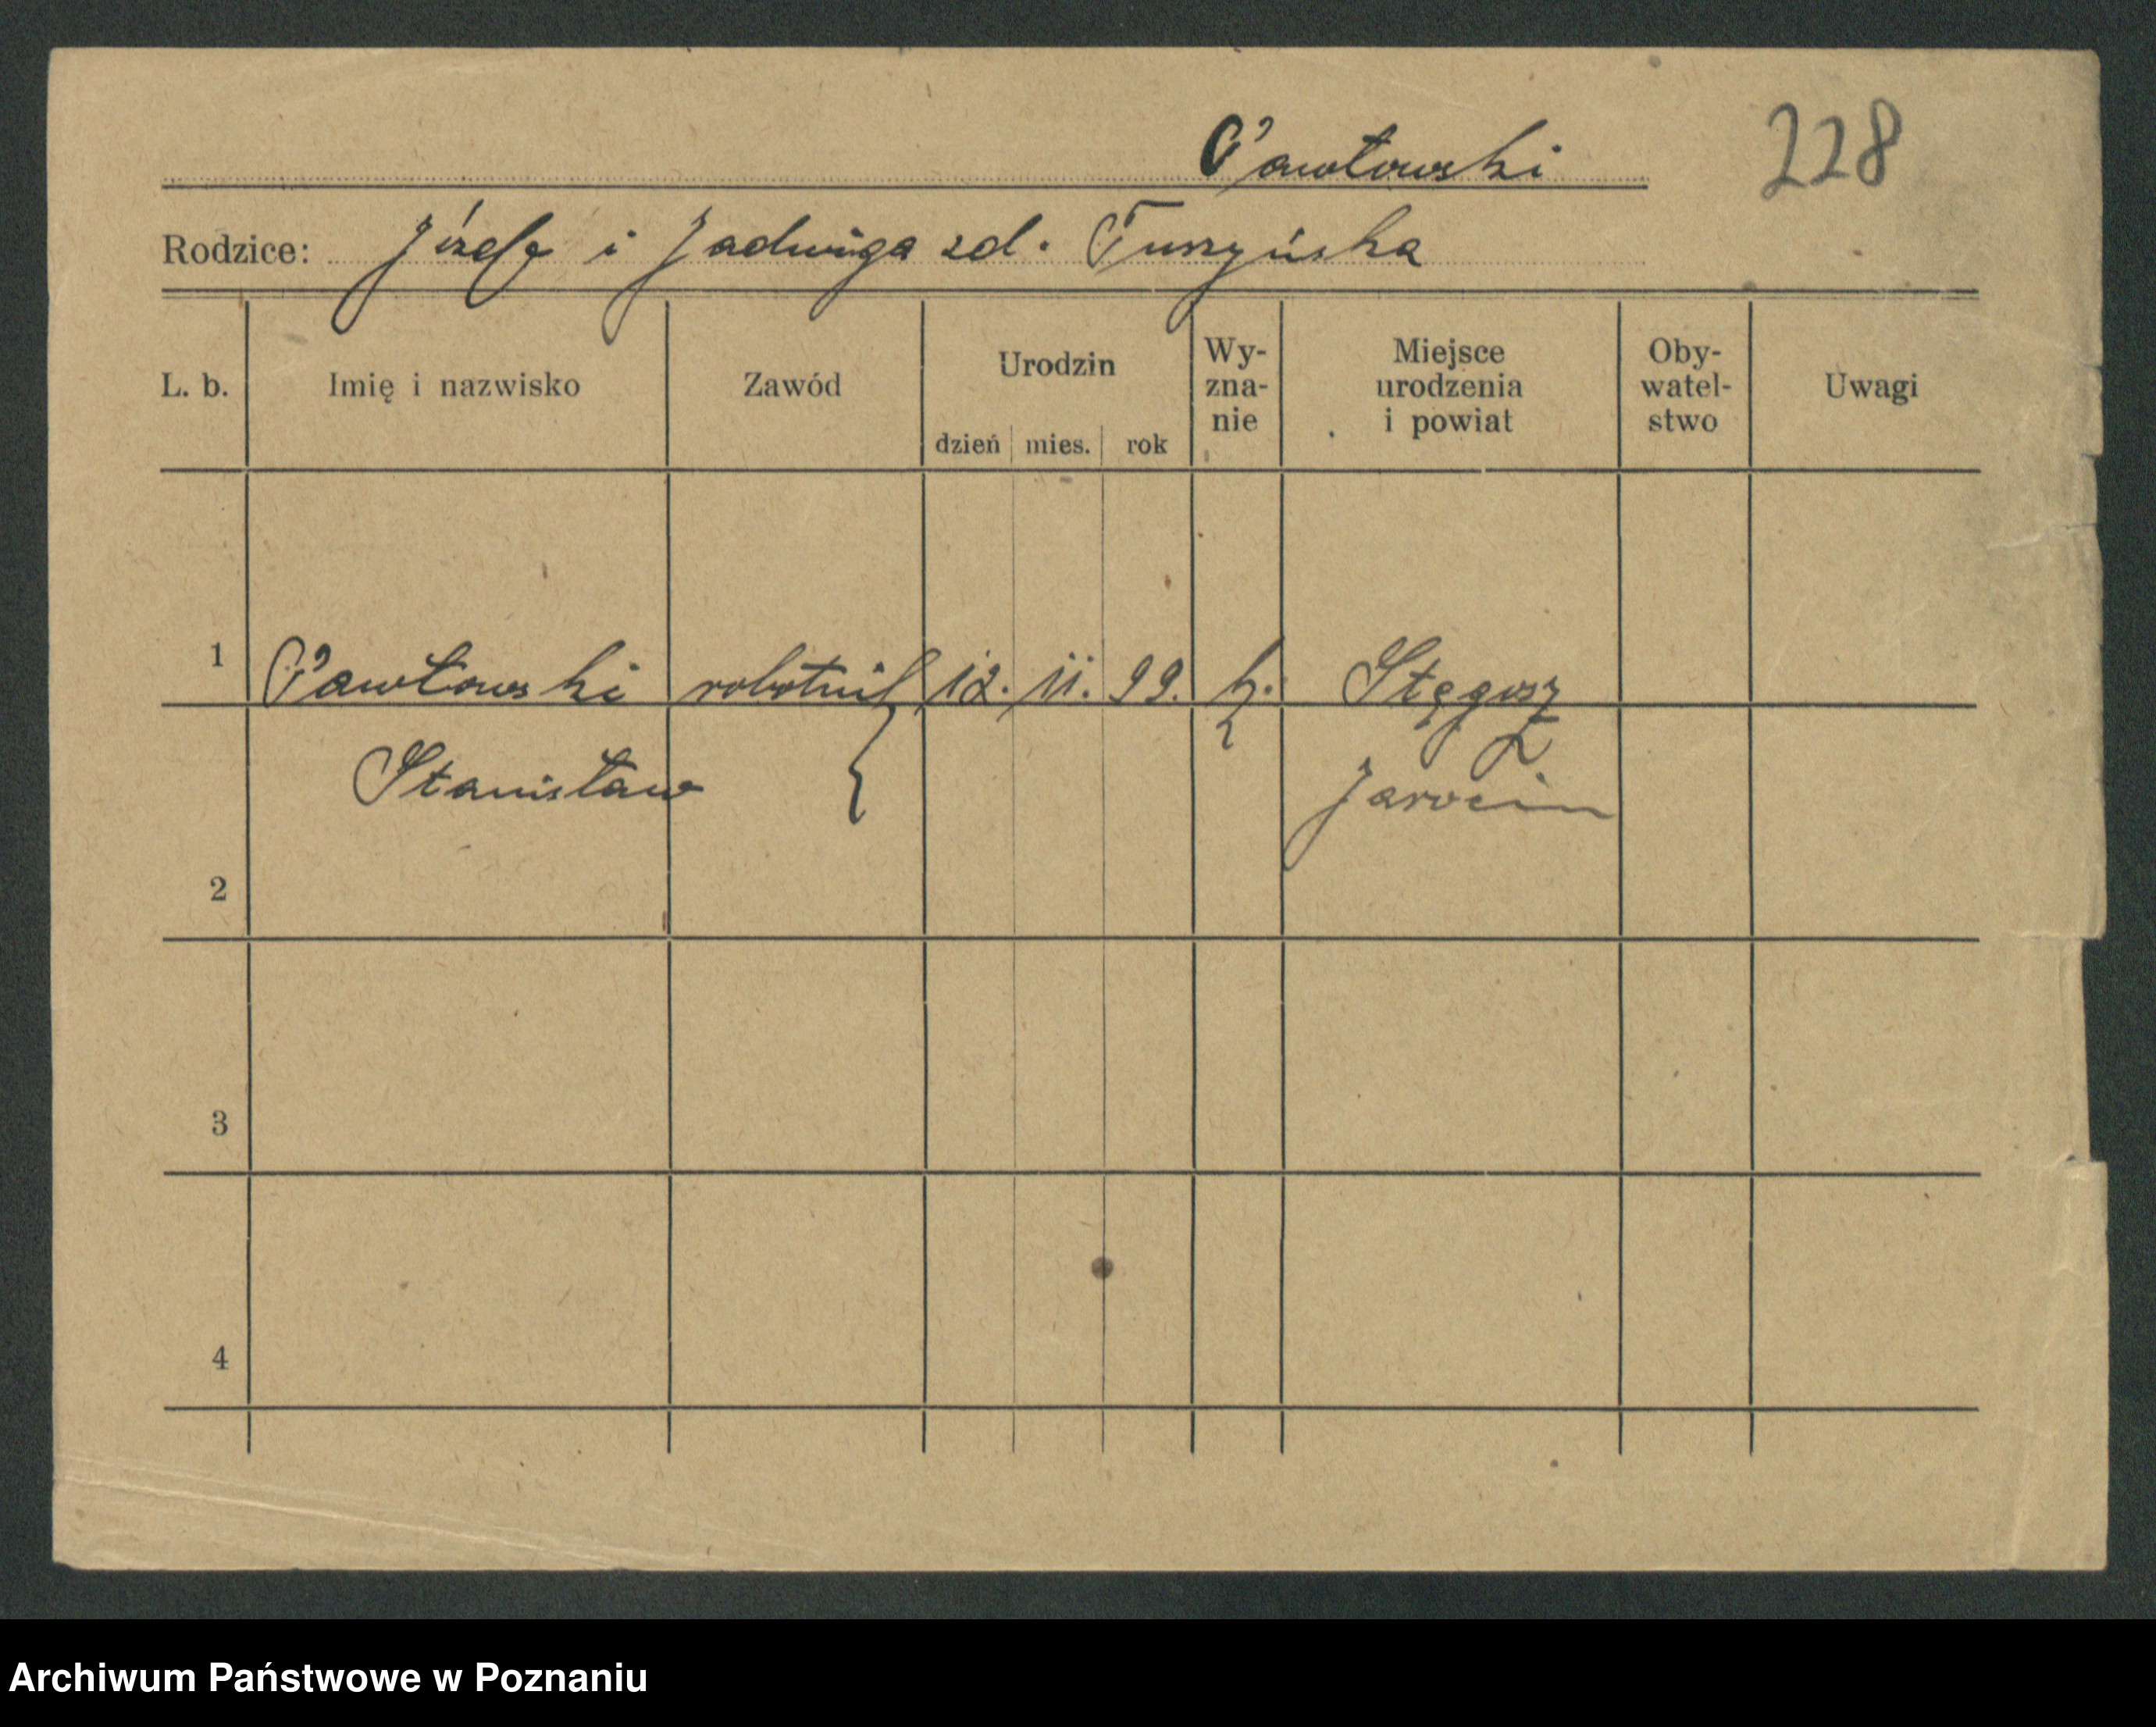 Pawłowski
228
Rodzice: Józef i Jadwiga zd. Tuszyńska
L. b. Imię i nazwisko Zawód Urodzin dzień mies. rok Wy-zna-nie Miejsce urodzenia i powiat Oby-watel-stwo Uwagi
1 Pawłowski robotnik 12. 11. 99. k. Stęgosz
Stanisław Jarocin
2
3
4
Archiwum Państwowe w Poznaniu